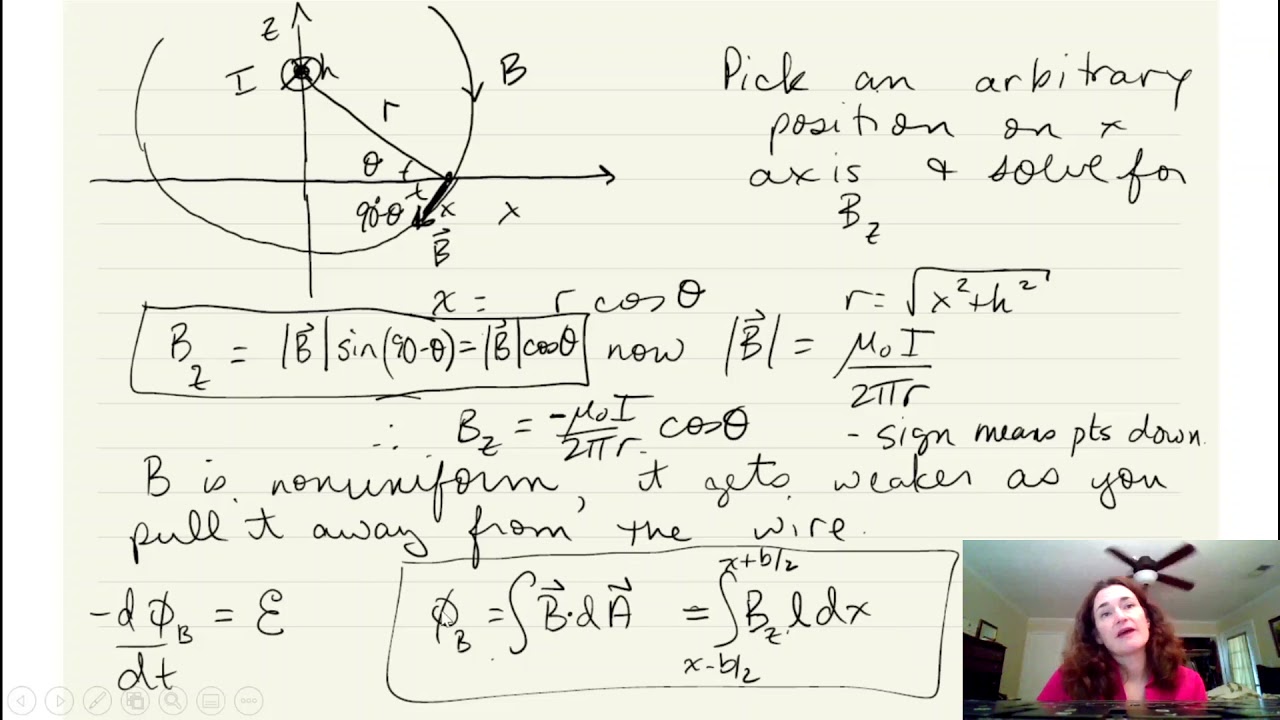 z
I h
r
B
θ
90-θ x x
B⃗
Pick an arbitrary
position on x
axis & solve for
B_z
x = r cosθ r = √x²+h²
B_z = |B⃗| sin(90-θ) = |B⃗| cosθ now |B⃗| = μ₀I/2πr
∴ B_z = -μ₀I/2πr cosθ - sign means pts down.
B is nonuniform, it gets weaker as you
pull it away from the wire.
-dϕ_B/dt = ℰ ϕ_B = ∫B⃗·dA⃗ = ∫_{x-b/2}^{x+b/2} B_z l dx